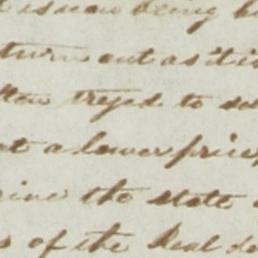 is now being
turn out as it is
tryed to
at a lower price
the state
of the Real